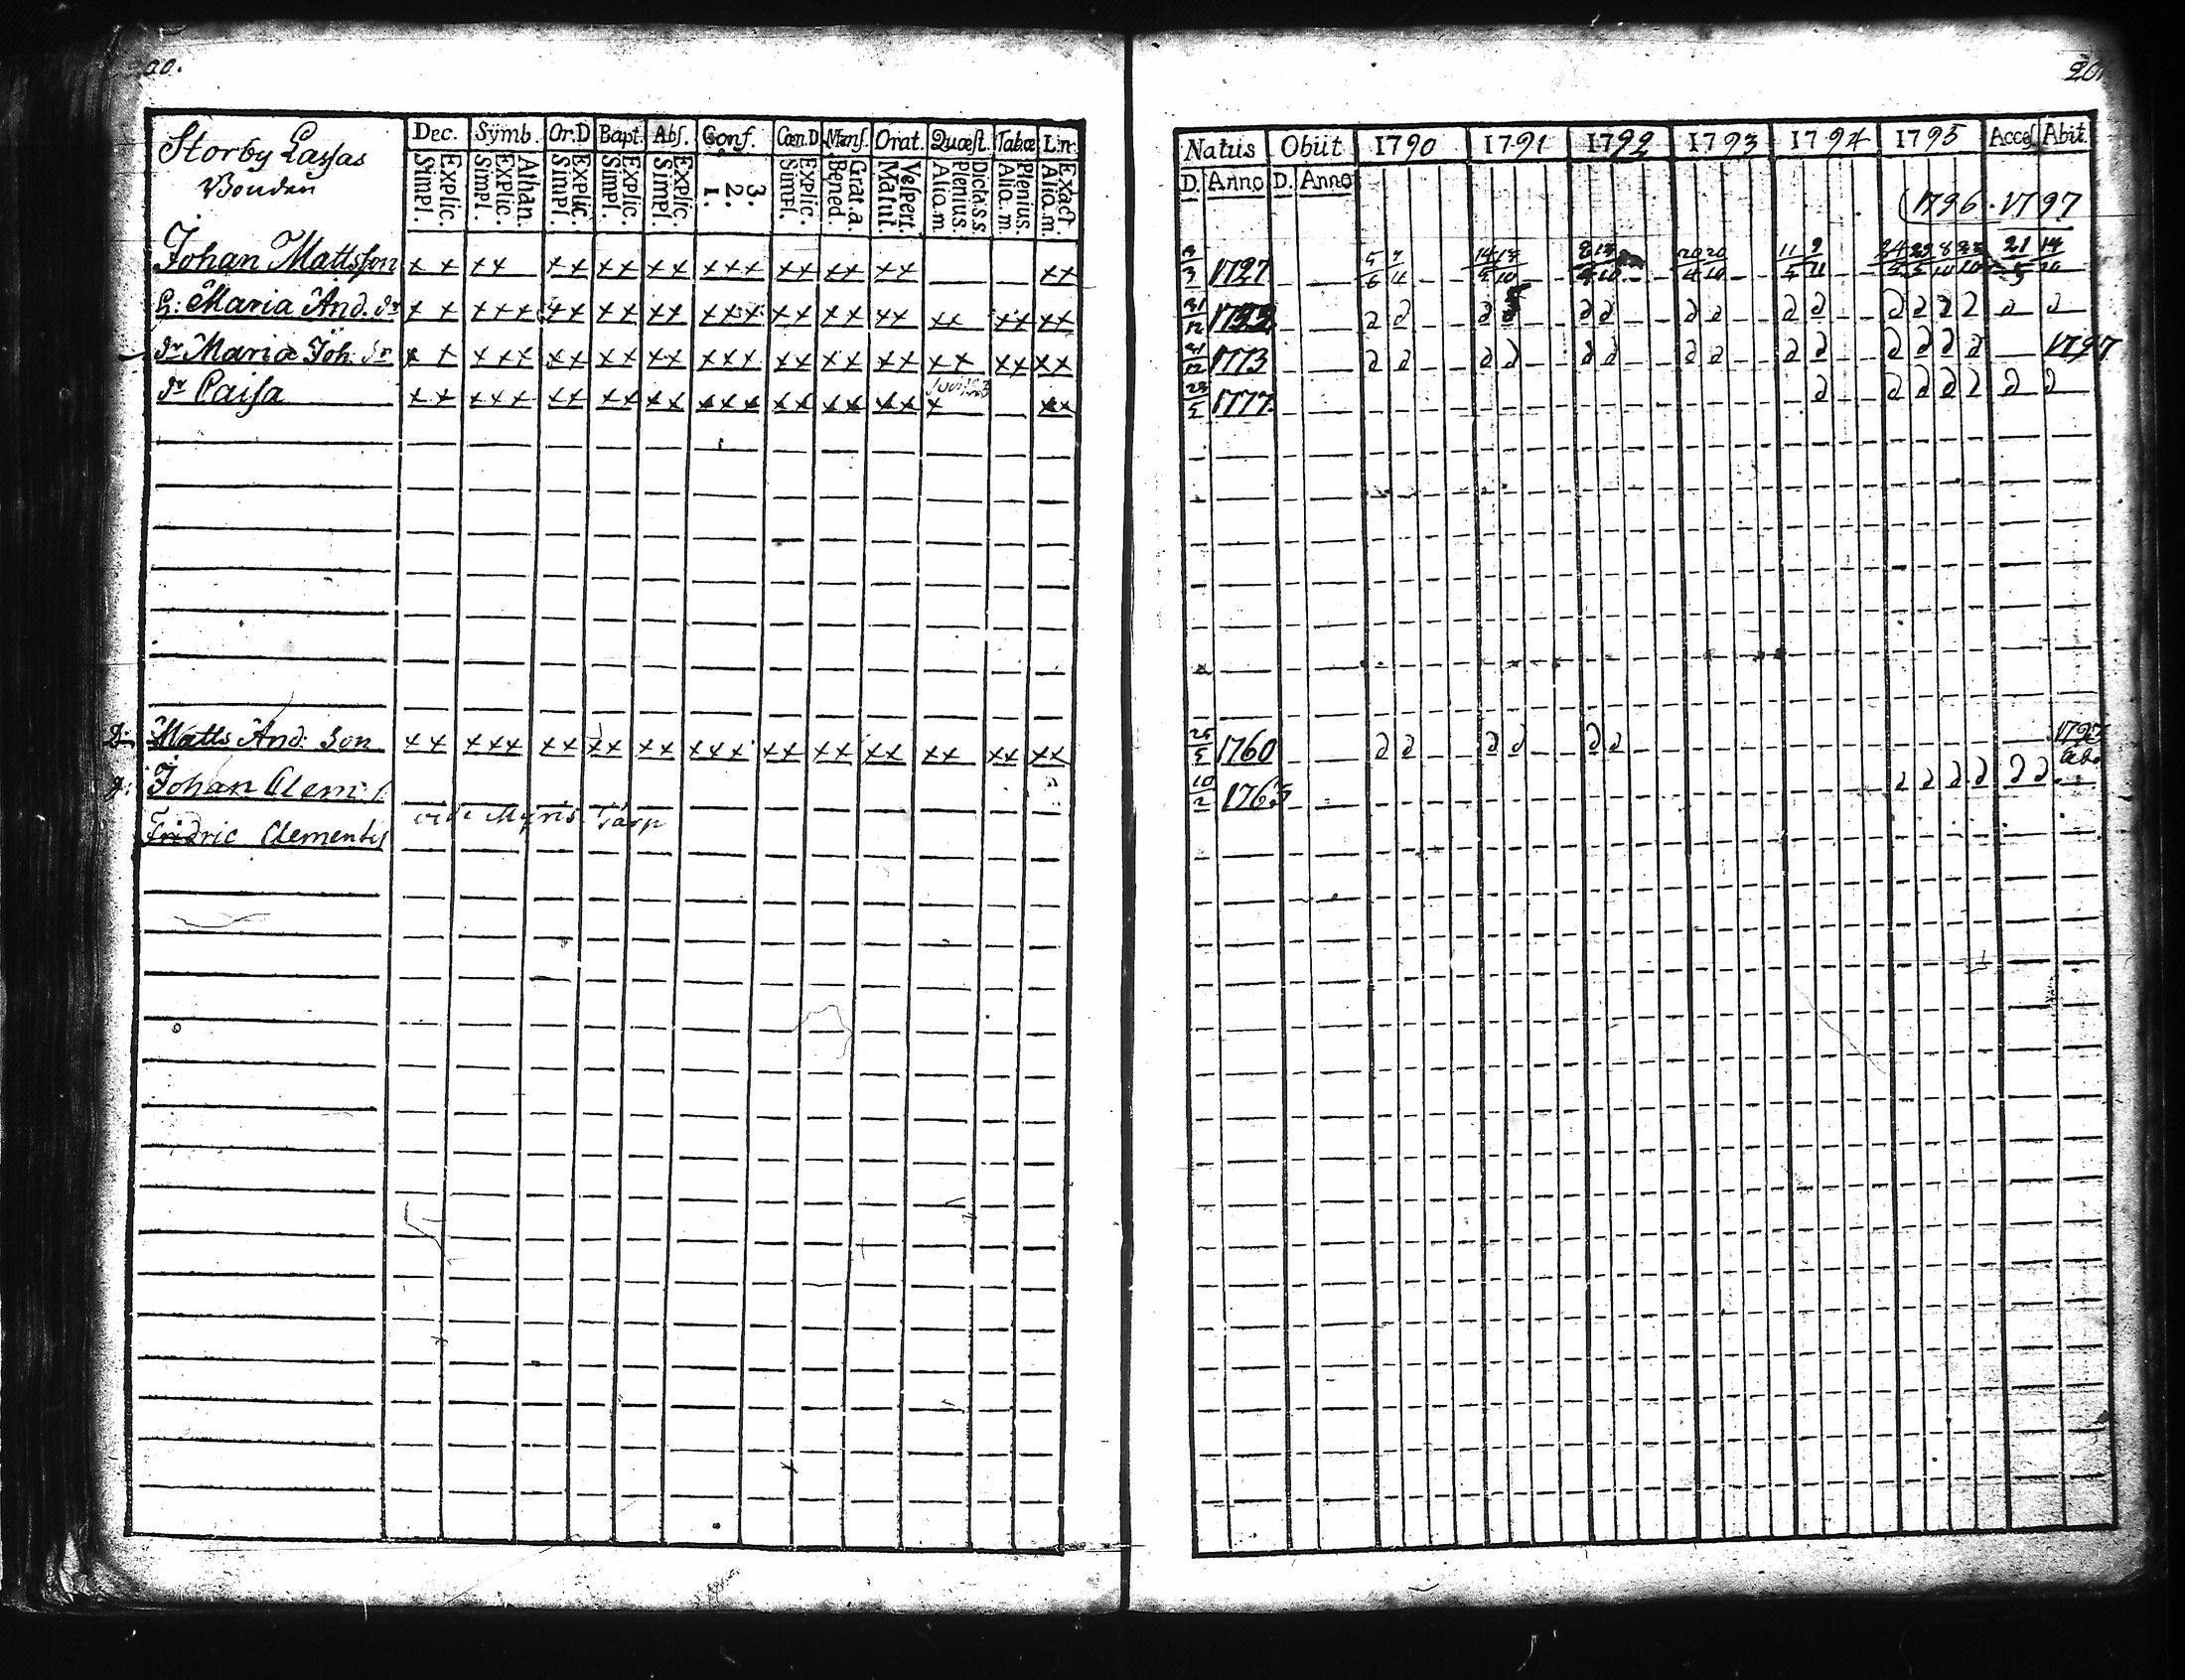 20.
Storby Lassas
Bonden
Dec. Symb. Or.D Bapt. Abs. Conf. Cœn.D Mens. Orat. Quæst. Tabæ Lin.
Explic. Simpl. Athan. Explic. Simpl. Explic. Simpl. Explic. Simpl. Explic. Simpl. 3. 2. 1. Explic. Simpl. Grat.a. Bened. Vespert. Matut. Dict.s.s. Plenius. Aliq.m. Plenius. Aliq.m. Exact. Aliq.m.
Johan Mattsson x x x x x x x x x x x x x x x x x x x x x
h: Maria And. dr x x x x x x x x x x x x x x x x x x x x x x x x x x
dr Maria Joh. dr x x x x x x x x x x x x x x x x x x x x x x x x x x
dr Caisa x x x x x x x x x x x x x x x x x x x x x x x
D: Matts And. Son x x x x x x x x x x x x x x x x x x x x x x x x x x
D: Johan Clem. s.
Fridric Clements vide Myris Torp
20
Natus Obiit 1790 1791 1792 1793 1794 1795 Acces. Abit.
D. Anno D. Anno
(1796. 1797
3 1727 5/6 7/4 14/5 13/10 20/4 20/10 11/5 9/11 24/5 29/5 8/10 23/10 21/5 14/10
31/12 d d d d d d d d d d d d d d d d
31/12 1773 d d d d d d d d d d d d d d 1797
23/5 1777 d d d d d d d
25/5 1760 d d d d d d 1797
ab.
10/2 1763 d d d d d d